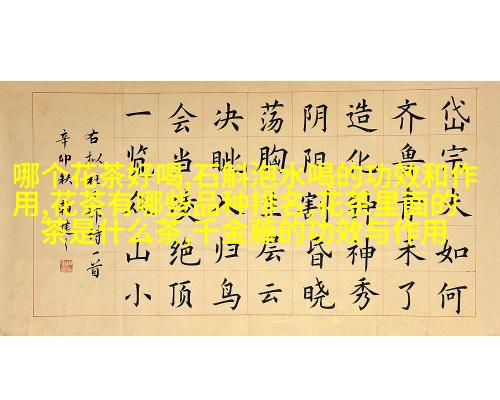 哪个花茶好喝,石斛泡水喝的功效和作
用,花茶有哪些品种排名,花茶里面的
茶是什么茶,千金藤的功效与作用
岱宗夫如何
齐鲁青未了
造化钟神秀
阴阳割昏晓
荡胸生层云
决眦入归鸟
会当凌绝顶
一览众山小
右拟杜诗一首
辛卯秋